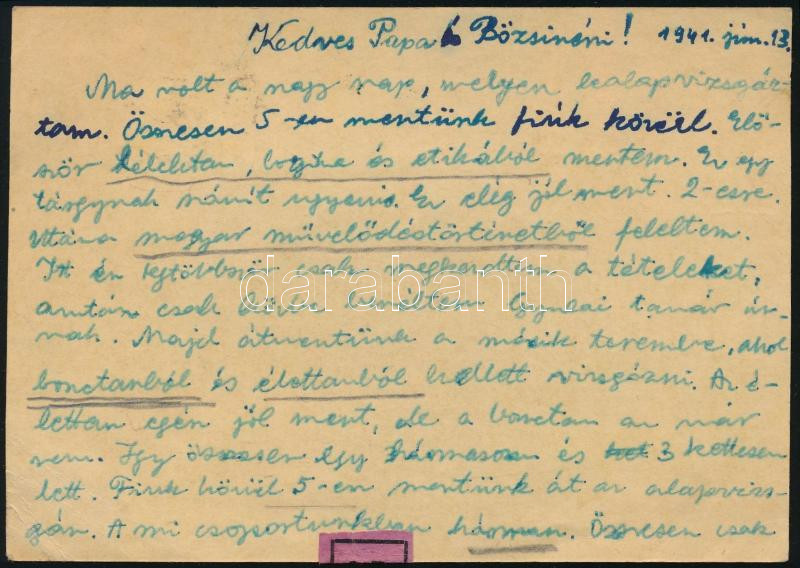 Kedves Papa és Bözsinéni! 1941. jún. 13.
Ma volt a nagy nap, melyen lealapvizsgáz-
tam. Összesen 5-en mentünk fiúk közül. Elő-
ször lélektan, logika és etikából mentem. Ez egy
tárgynak számít ugyanis. Ez elég jól ment. 2-esre.
Utána magyar művelődéstörténetből feleltem.
Itt én legtöbbször csak megkezdtem a tételeket,
azután csak Gyulai tanár úr-
nak. Majd átmentünk a másik terembe, ahol
bonctanból és élettanból kellett vizsgázni. Az é-
lettan egész jól ment, de a bonctan az már
nem. Így összesen egy hármasom és 3 kettesem
lett. Fiúk közül 5-en mentünk át az alapvizs-
gán. A mi csoportunkban hárman. Összesen csak
darabanth